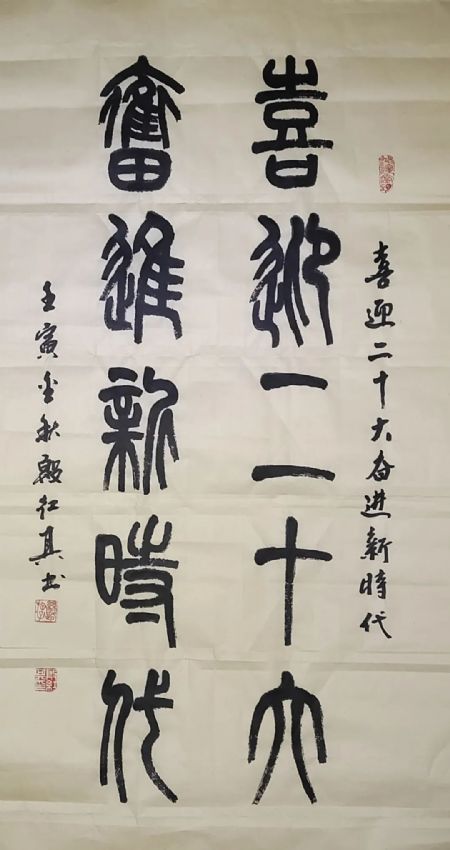 喜迎二十大奋进新時代
喜迎二十大
奮進新時代
壬寅金秋殷红真书